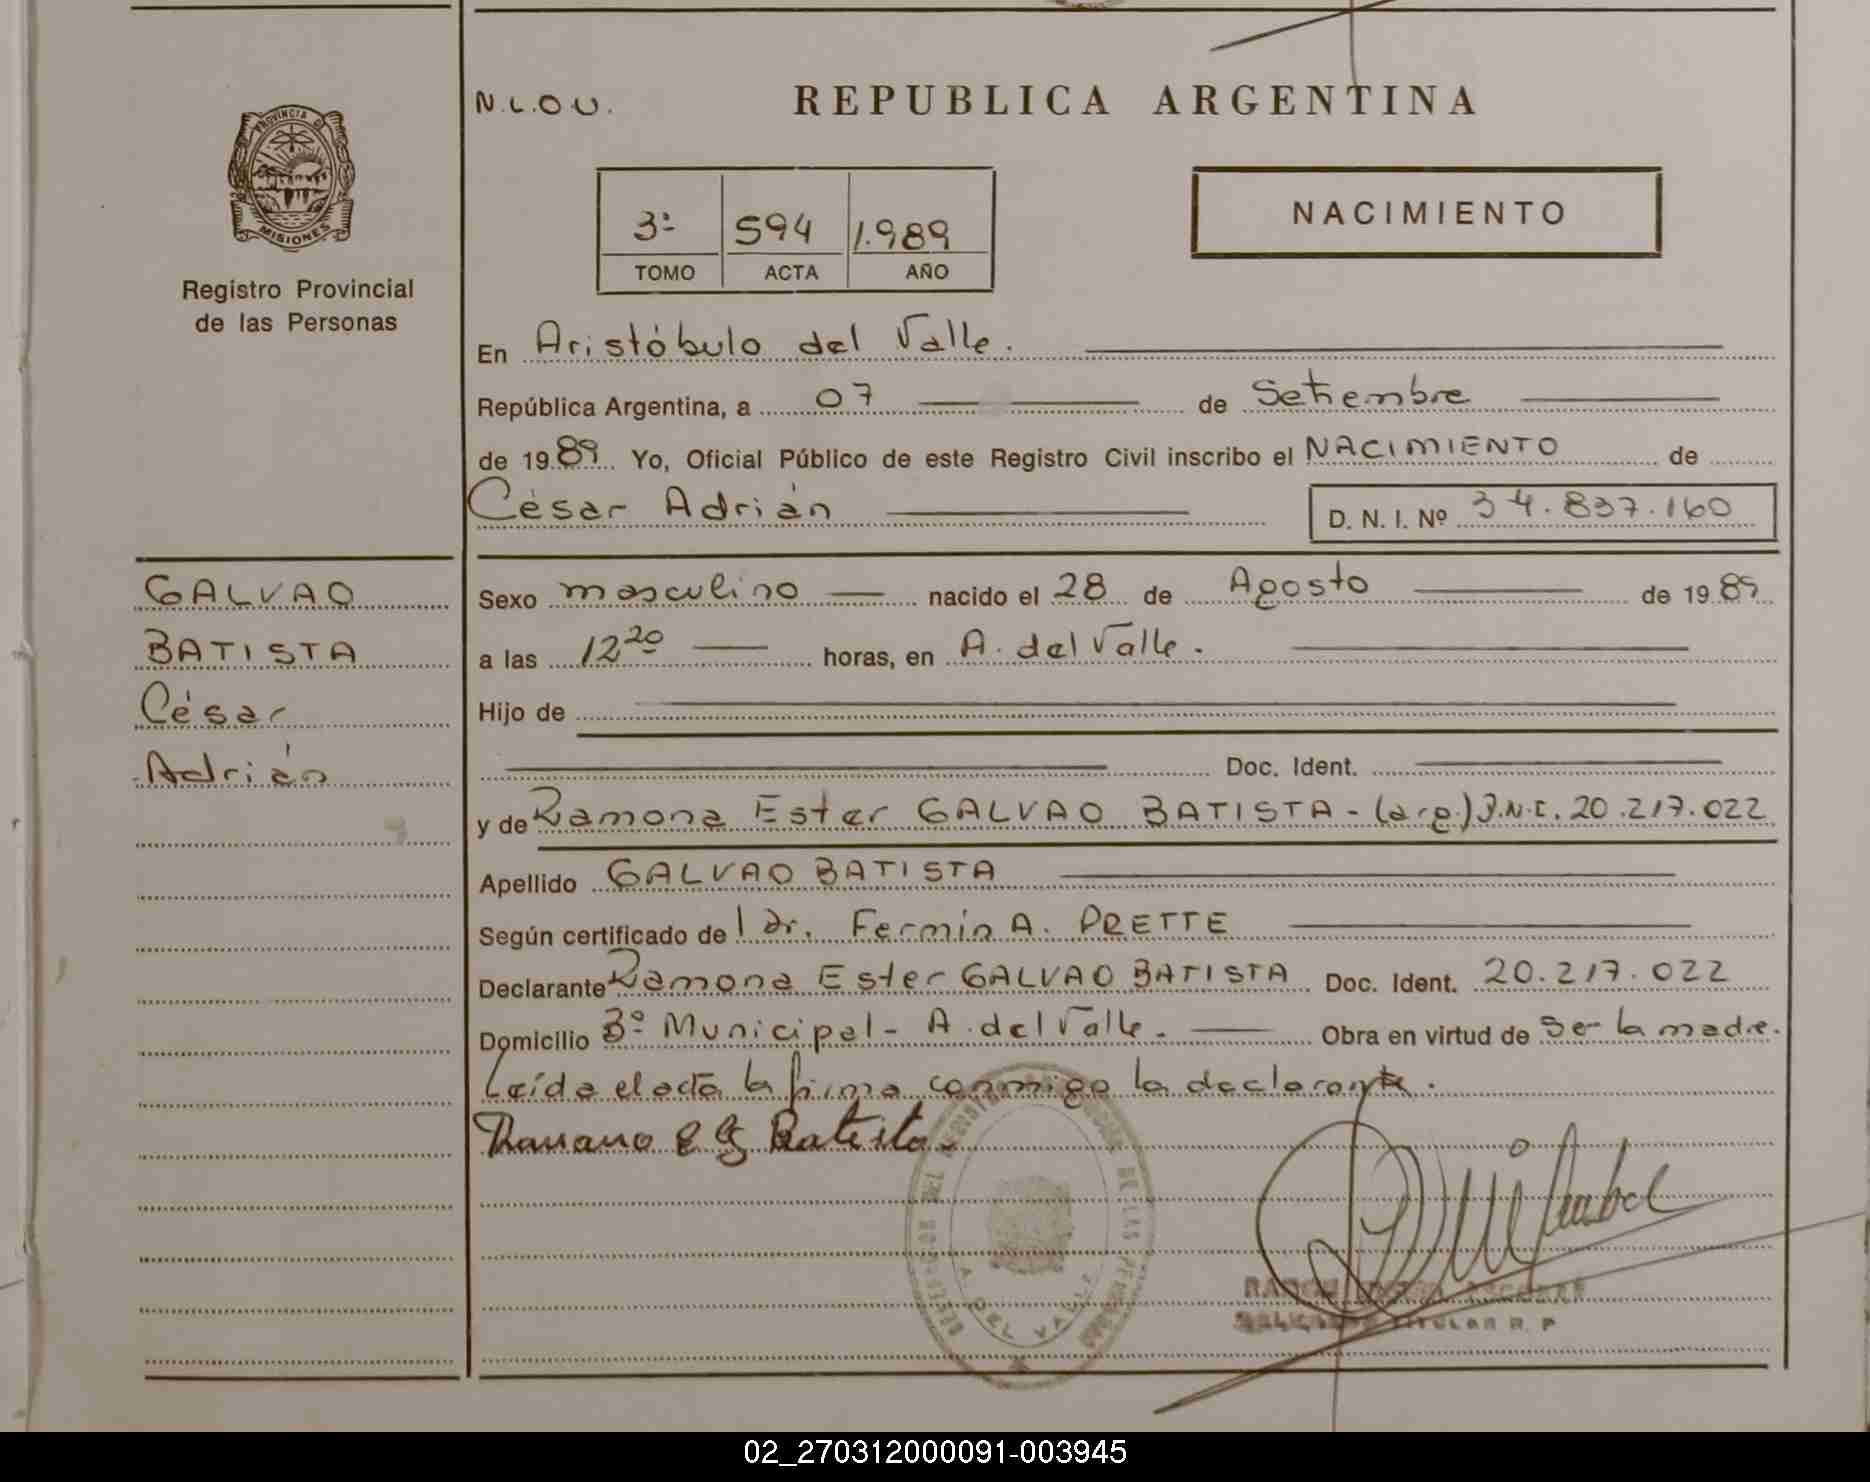 N.L.O.U.
REPUBLICA ARGENTINA
PROVINCIA DE
MISIONES
Registro Provincial
de las Personas
3º 594 1.989
TOMO ACTA AÑO
NACIMIENTO
En Aristóbulo del Valle.
República Argentina, a 07 de Setiembre
de 1989 Yo, Oficial Público de este Registro Civil inscribo el NACIMIENTO de
César Adrián D. N. I. Nº 34.837.160
GALVAO
BATISTA
César
Adrián
Sexo masculino nacido el 28 de Agosto de 1989
a las 12 20 horas, en A. del Valle.
Hijo de
Doc. Ident.
y de Ramona Ester GALVAO BATISTA - (arg.) D.N.I. 20.217.022
Apellido GALVAO BATISTA
Según certificado del Dr. Fermín A. PRETTE
Declarante Ramona Ester GALVAO BATISTA Doc. Ident. 20.217.022
Domicilio Bº Municipal - A. del Valle. Obra en virtud de ser la madre.
Leída el acta la firma conmigo la declarante.
Batista
DE LAS
A. DEL VALLE
TITULAR R. P
02_270312000091-003945